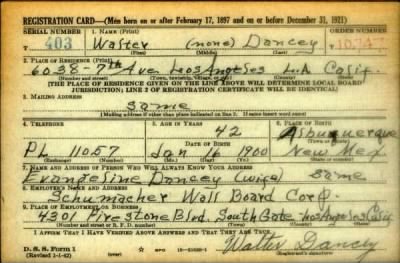 REGISTRATION CARD—(Men born on or after February 17, 1897 and on or before December 31, 1921)
SERIAL NUMBER 1. NAME (Print) ORDER NUMBER
T 403 Walter (none) Dancey 10747
2. PLACE OF RESIDENCE (Print)
6038-7th Ave Los Angeles L.A Calif
(Number and street) (Town, township, village, or city) (County) (State)
[THE PLACE OF RESIDENCE GIVEN ON THE LINE ABOVE WILL DETERMINE LOCAL BOARD
JURISDICTION; LINE 2 OF REGISTRATION CERTIFICATE WILL BE IDENTICAL]
3. MAILING ADDRESS
Same
[Mailing address if other than place indicated on line 2. If same insert word same]
4. TELEPHONE 5. AGE IN YEARS 6. PLACE OF BIRTH
42 Albuquerque
DATE OF BIRTH (Town or county)
PL 11057 Jan 16 1900 New Mex
(Exchange) (Number) (Mo.) (Day) (Yr.) (State or country)
7. NAME AND ADDRESS OF PERSON WHO WILL ALWAYS KNOW YOUR ADDRESS
Evangeline Dancey (wife) Same
8. EMPLOYER'S NAME AND ADDRESS
Schumacher Wall Board Corp
9. PLACE OF EMPLOYMENT OR BUSINESS
4301 Firestone Blvd. South Gate Los Angeles Calif
(Number and street or R. F. D. number) (Town) (County) (State)
I AFFIRM THAT I HAVE VERIFIED ABOVE ANSWERS AND THAT THEY ARE TRUE.
D. S. S. Form 1
(Revised 1-1-42) (over) Walter Dancey
(Registrant's signature)